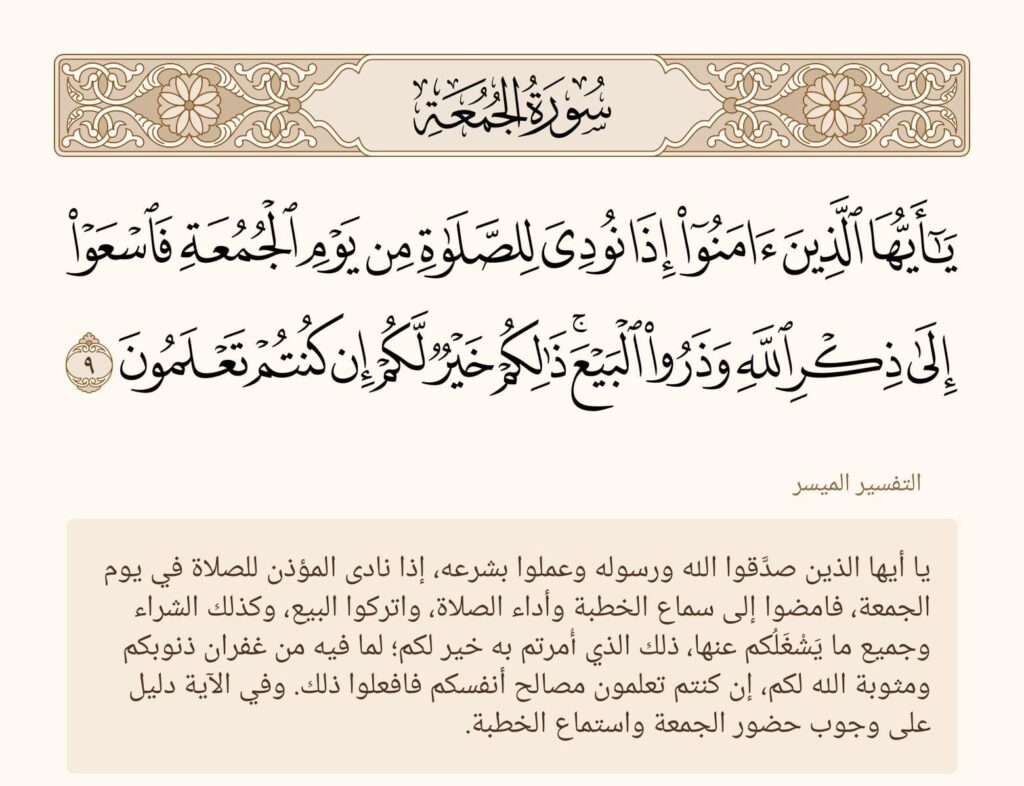 سُورَةُ الجُمُعَةِ
يَـٰٓأَيُّهَا ٱلَّذِينَ ءَامَنُوٓا۟ إِذَا نُودِىَ لِلصَّلَوٰةِ مِن يَوْمِ ٱلْجُمُعَةِ فَٱسْعَوْا۟
إِلَىٰ ذِكْرِ ٱللَّهِ وَذَرُوا۟ ٱلْبَيْعَ ۚ ذَٰلِكُمْ خَيْرٌ لَّكُمْ إِن كُنتُمْ تَعْلَمُونَ ٩
التفسير الميسر
يا أيها الذين صدَّقوا الله ورسوله وعملوا بشرعه، إذا نادى المؤذن للصلاة في يوم
الجمعة، فامضوا إلى سماع الخطبة وأداء الصلاة، واتركوا البيع، وكذلك الشراء
وجميع ما يَشْغَلُكم عنها، ذلك الذي أُمرتم به خير لكم؛ لما فيه من غفران ذنوبكم
ومثوبة الله لكم، إن كنتم تعلمون مصالح أنفسكم فافعلوا ذلك. وفي الآية دليل
على وجوب حضور الجمعة واستماع الخطبة.